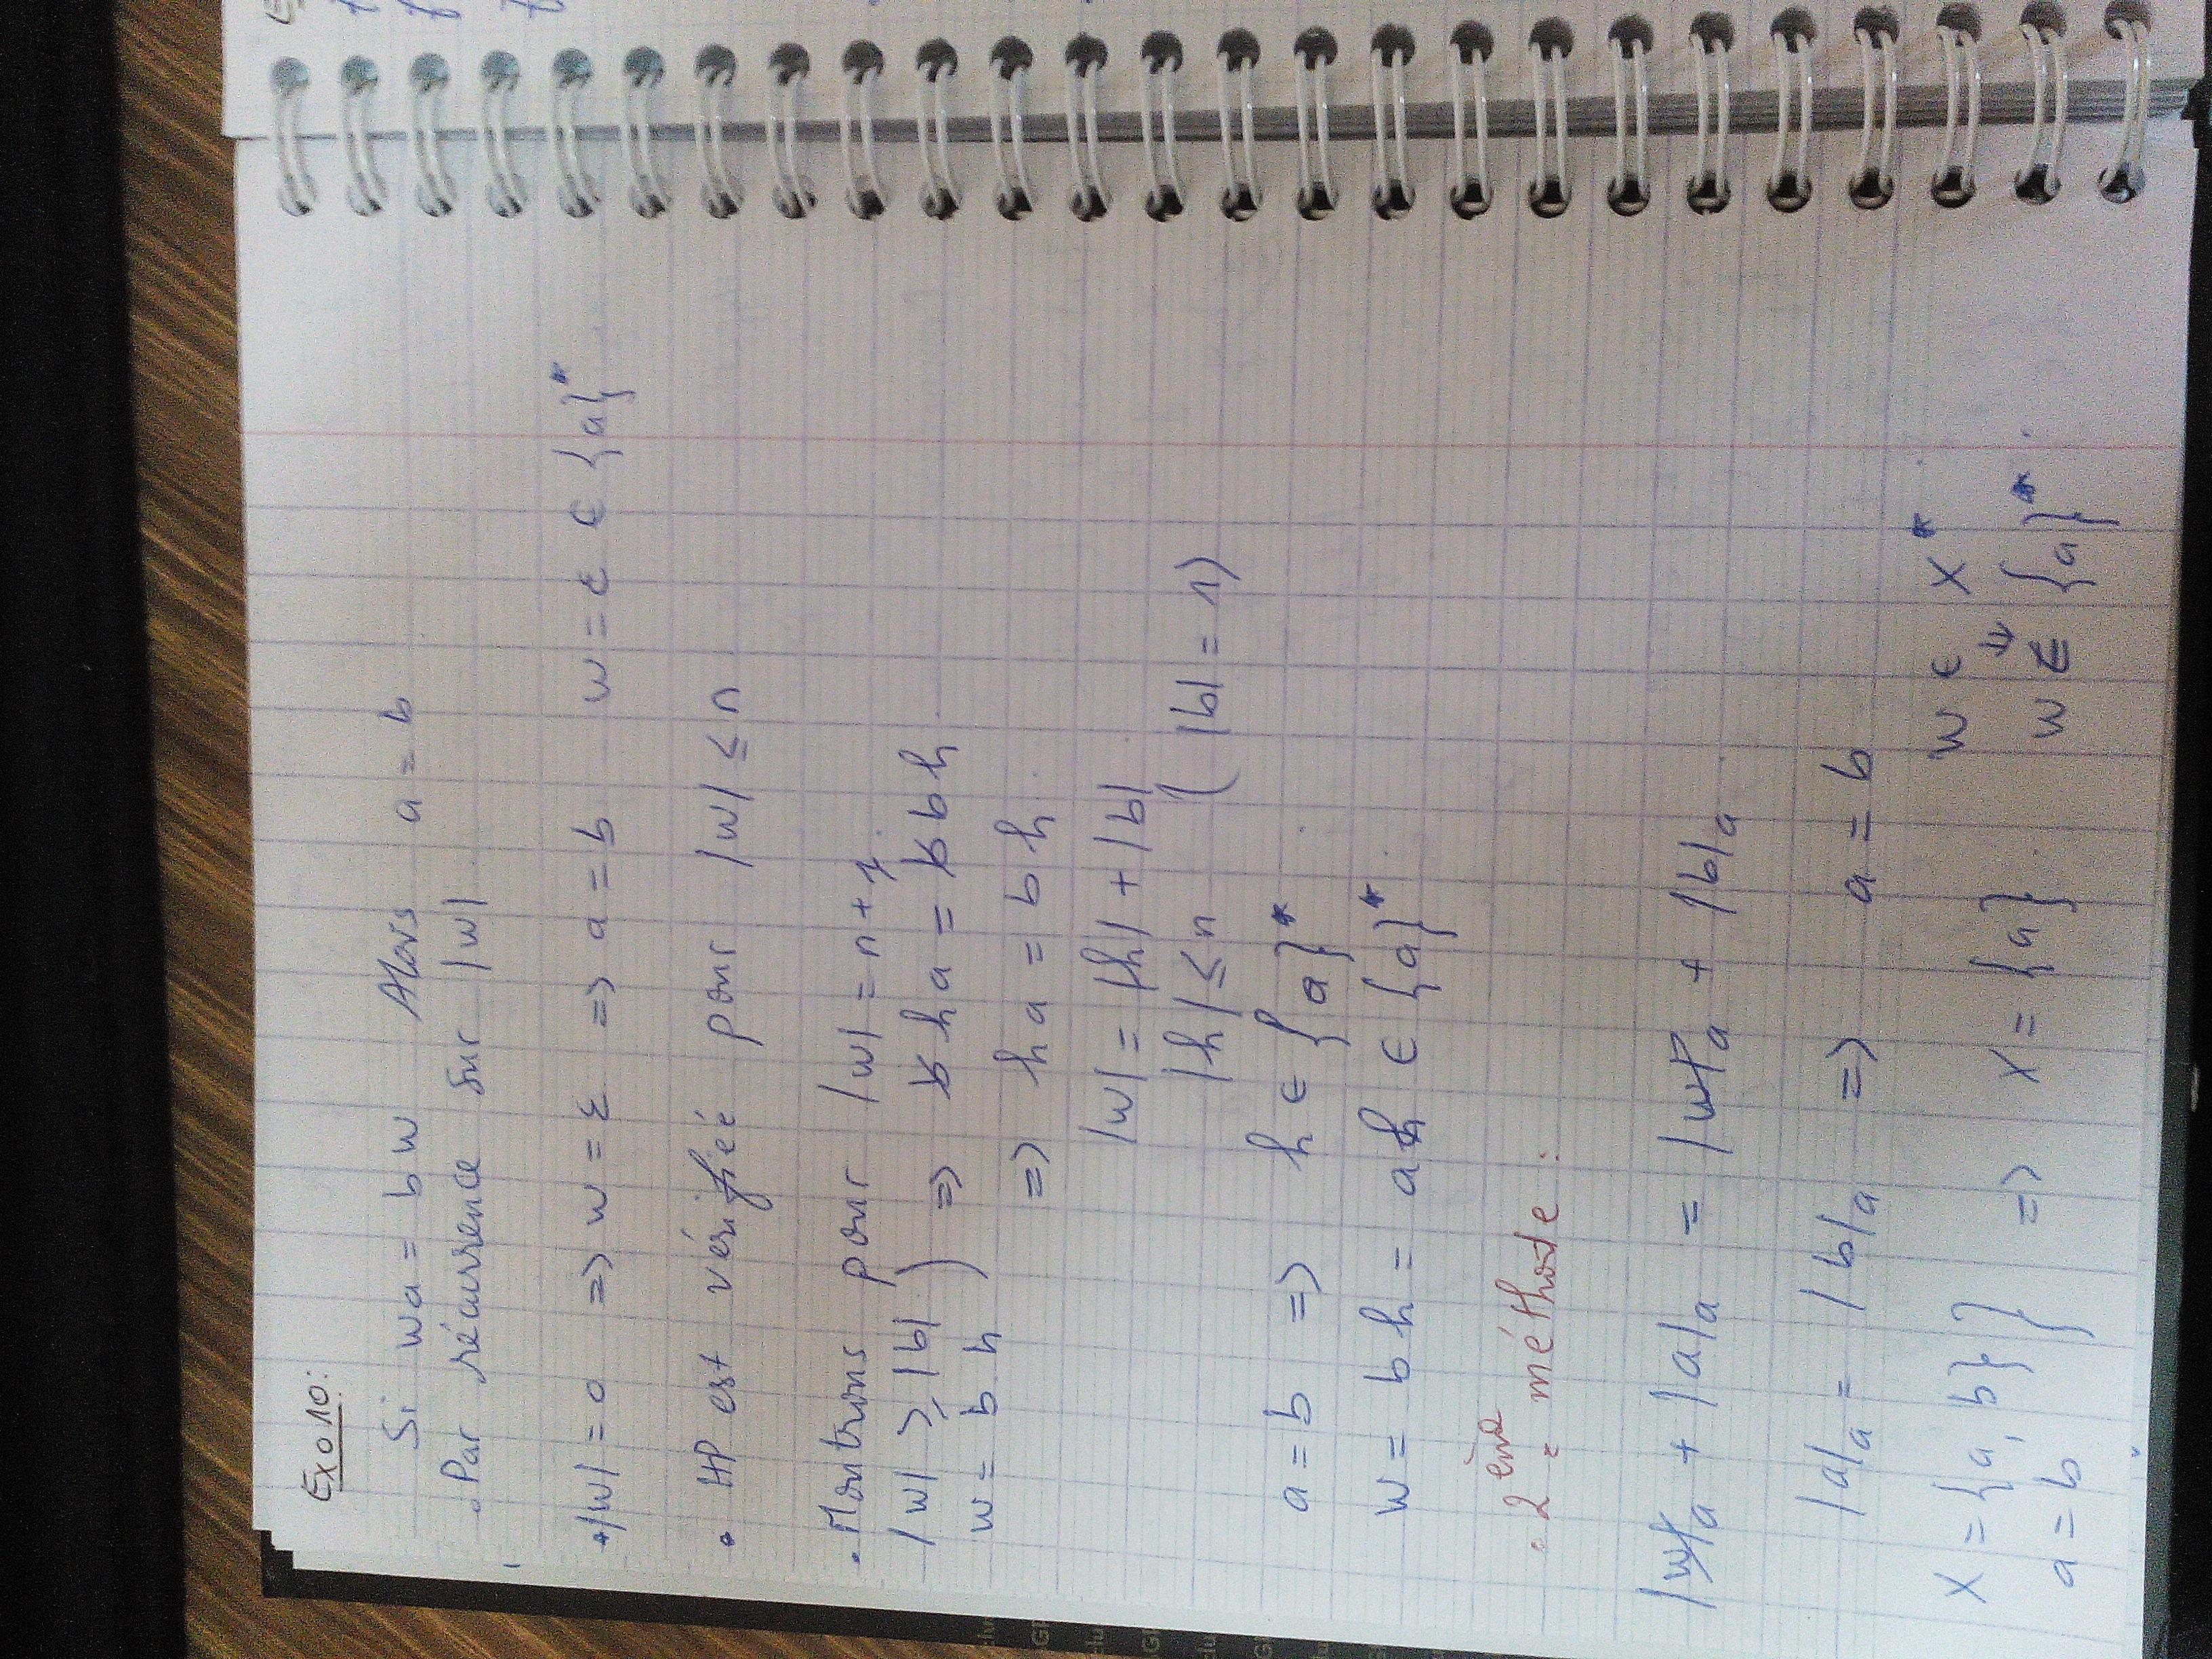 Exo 10:
Si wa = bw Alors a = b
. Par récurrence sur |w|
. |w| = 0 => w = ε => a = b w = ε ∈ {a}*
. HP est vérifiée pour |w| ≤ n
. Montrons pour |w| = n + 1.
|w| ≥ |b|
w = b h ) => b h a = b b h
=> h a = b h
|w| = |h| + |b|
|h| ≤ n ( |b| = 1)
a = b => h ∈ {a}*
w = b h = a h ∈ {a}*
. 2ème méthode :
|w|a + |a|a = |w|a + |b|a
|a|a = |b|a => a = b
X = {a, b}
a = b } => X = {a} w ∈ X*
⇓
w ∈ {a}*